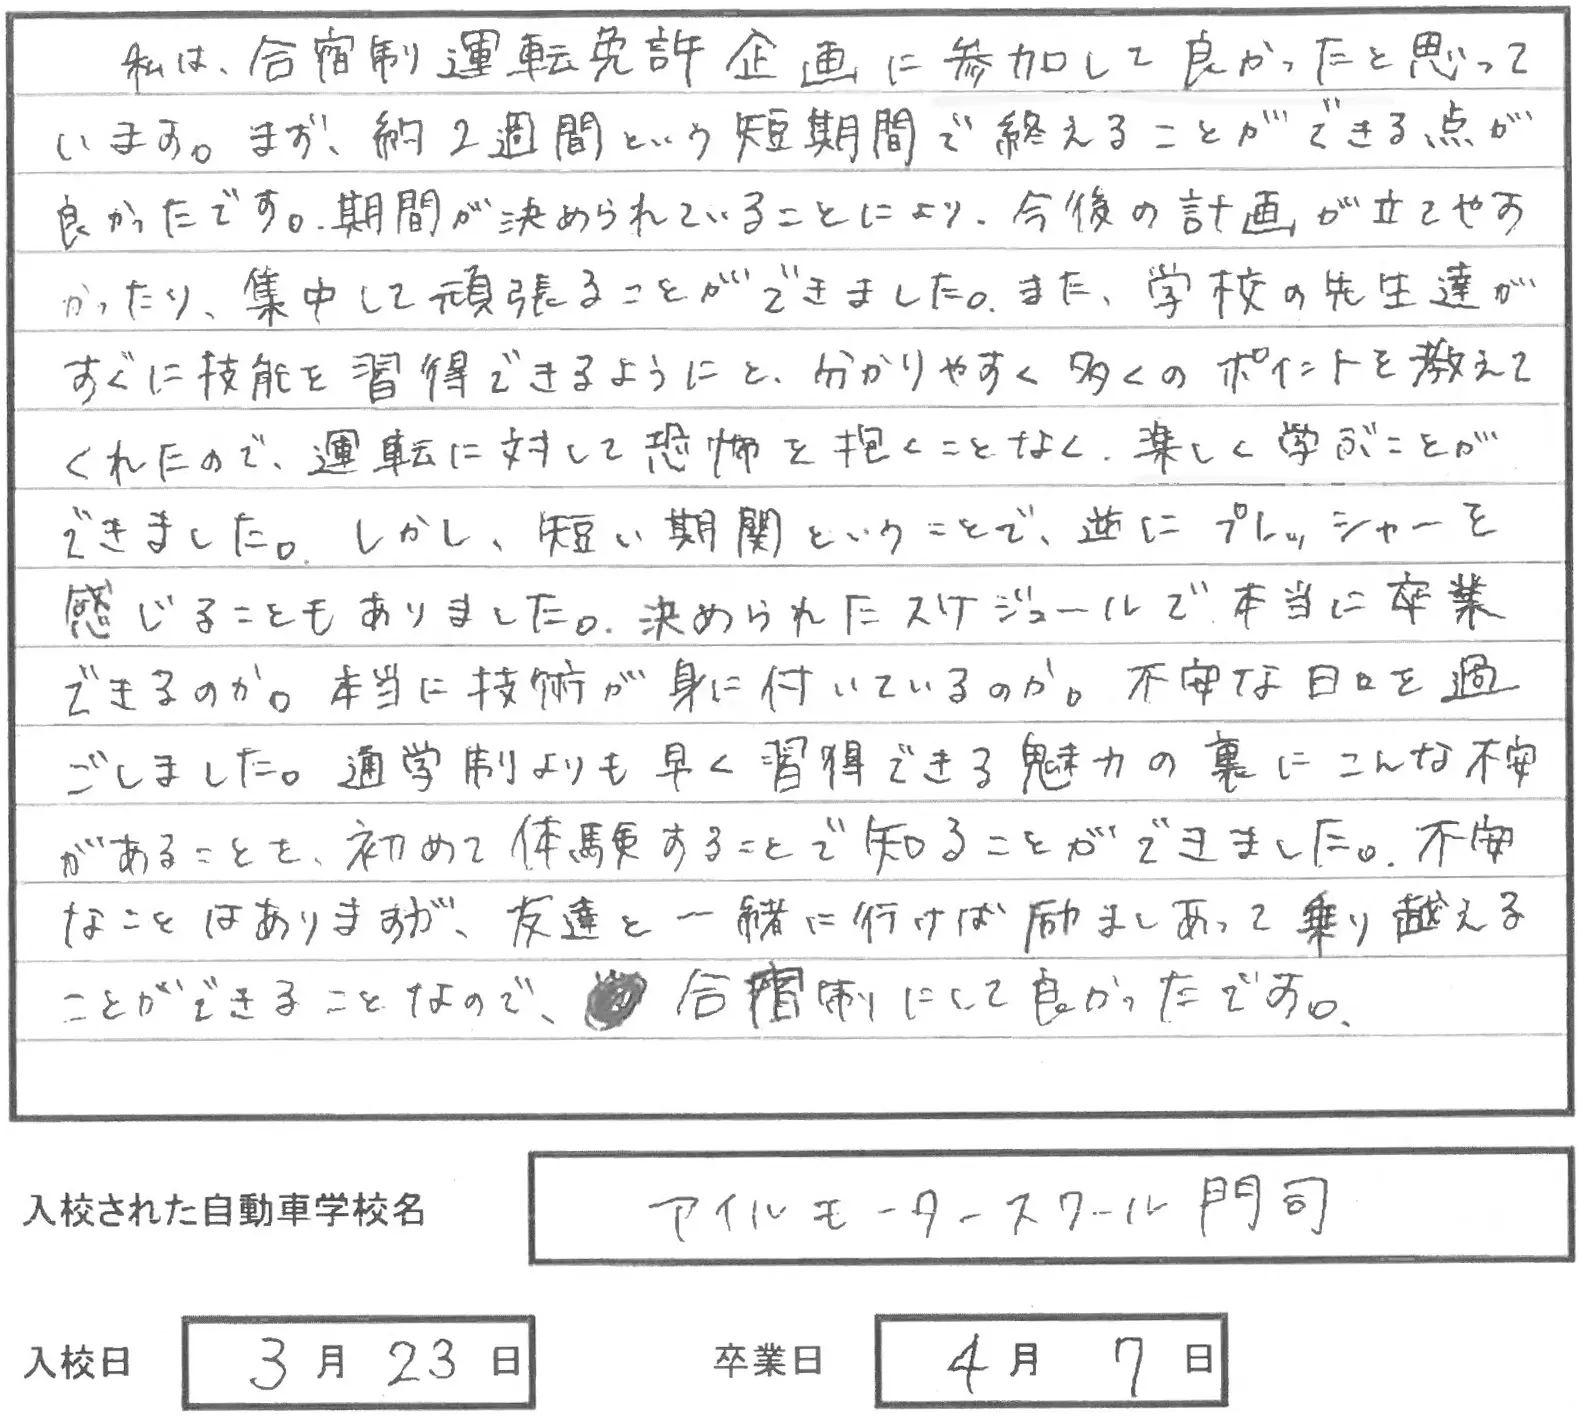 私は、合宿制運転免許企画に参加して良かったと思って
います。まず、約2週間という短期間で終えることができる点が
良かったです。期間が決められていることにより、今後の計画が立てやす
かったり、集中して頑張ることができました。また、学校の先生達が
すぐに技能を習得できるようにと、分かりやすく多くのポイントを教えて
くれたので、運転に対して恐怖を抱くことなく、楽しく学ぶことが
できました。しかし、短い期間ということで、逆にプレッシャーを
感じることもありました。決められたスケジュールで本当に卒業
できるのか。本当に技術が身に付いているのか。不安な日々を過
ごしました。通学制よりも早く習得できる魅力の裏にこんな不安
があることを、初めて体験することで知ることができました。不安
なことはありますが、友達と一緒に行けば励ましあって乗り越える
ことができることなので、合宿制にして良かったです。
入校された自動車学校名 アイルモータースクール門司
入校日 3月23日 卒業日 4月7日